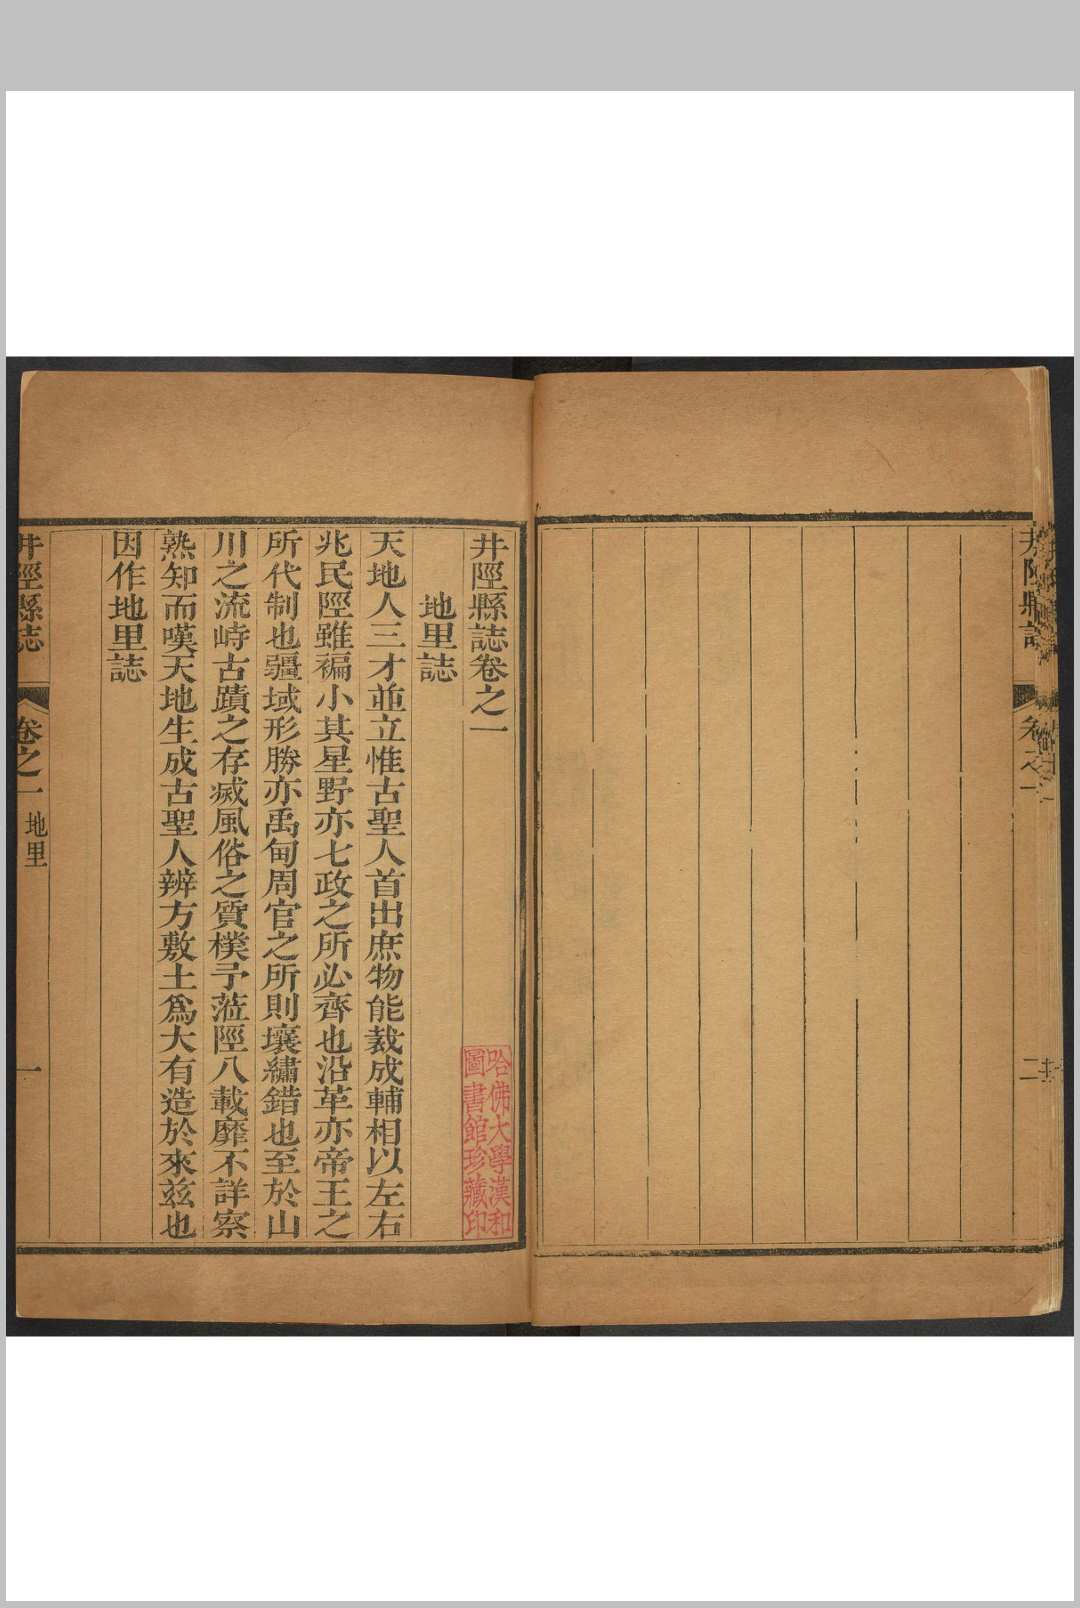 井陘縣誌卷之一
地里誌
天地人三才並立惟古聖人首出庶物能裁成輔相以左右
兆民陘雖褊小其星野亦七政之所必齊也沿革亦帝王之
所代制也疆域形勝亦禹甸周官之所則壤繡錯也至於山
川之流峙古蹟之存滅風俗之質樸予蒞陘八載靡不詳察
熟知而嘆天地生成古聖人辨方敷土爲大有造於來茲也
因作地里誌
井陘縣誌
卷之一
地里
一
哈佛大學漢和
圖書館珍藏印